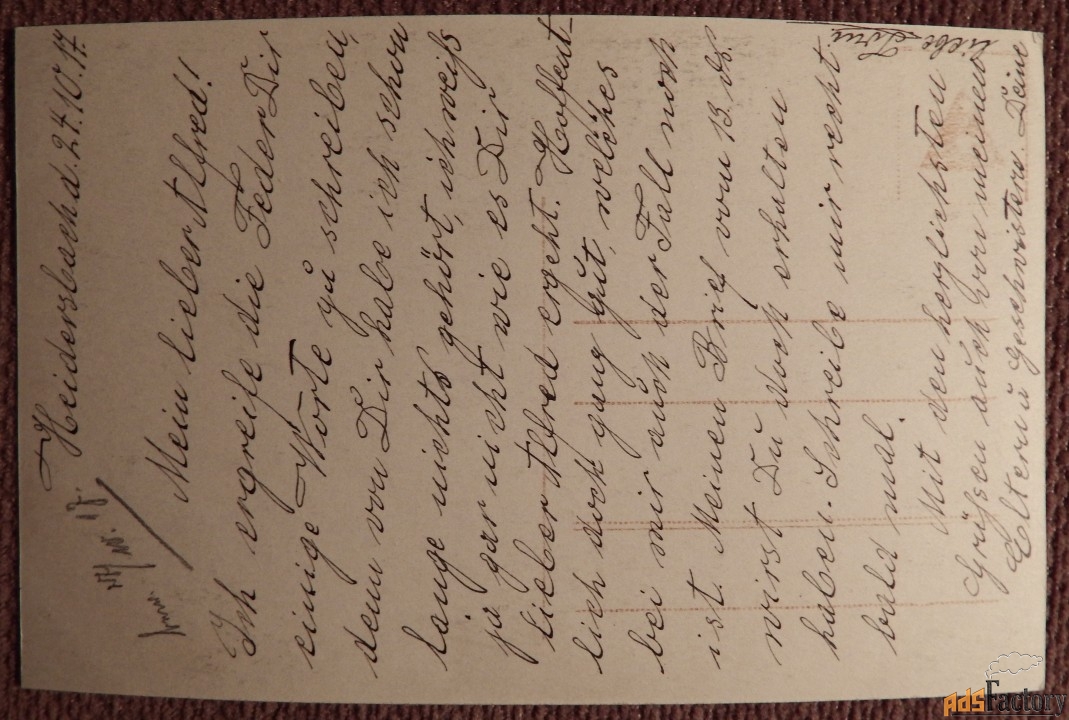 Heidersbach d. 27.10.17.
Mein lieber Alfred!
Ich ergreife die Feder Dir
einige Worte zu schreiben,
denn von Dir habe ich schon
lange nichts gehört, ich weiß
ja gar nicht wie es Dir
lieber Alfred ergeht. Hoffent-
lich doch ganz gut, welches
bei mir auch der Fall noch
ist. Meinen Brief vom 13. ds.
wirst Du doch erhalten
haben. Schreibe mir recht
bald mal.
Mit den herzlichsten
Grüßen auch von meinen
Eltern u Geschwistern. Deine
liebe
AdsFactory